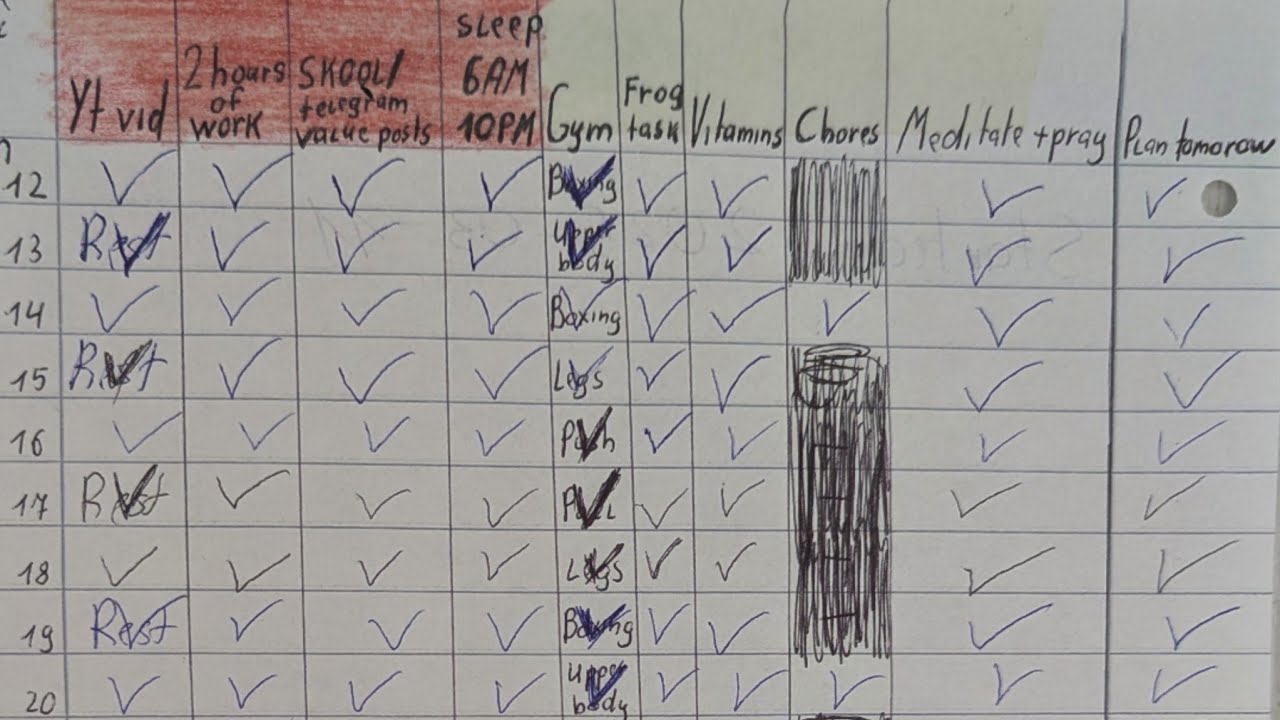 Yt vid
2 hours of work
SKOOL/ telegram value posts
SLEEP 6AM 10PM
Gym
Frog task
Vitamins
Chores
Meditate + pray
Plan tomorow
12 ✓ ✓ ✓ ✓ Boxing ✓ ✓ ✓ ✓
13 Rest ✓ ✓ ✓ Upper body ✓ ✓ ✓ ✓
14 ✓ ✓ ✓ ✓ Boxing ✓ ✓ ✓ ✓ ✓
15 Rest ✓ ✓ ✓ Legs ✓ ✓ ✓ ✓
16 ✓ ✓ ✓ ✓ Push ✓ ✓ ✓ ✓
17 Rest ✓ ✓ ✓ Pull ✓ ✓ ✓ ✓
18 ✓ ✓ ✓ ✓ Legs ✓ ✓ ✓ ✓
19 Rest ✓ ✓ ✓ Boxing ✓ ✓ ✓ ✓
20 ✓ ✓ ✓ ✓ Upper body ✓ ✓ ✓ ✓ ✓